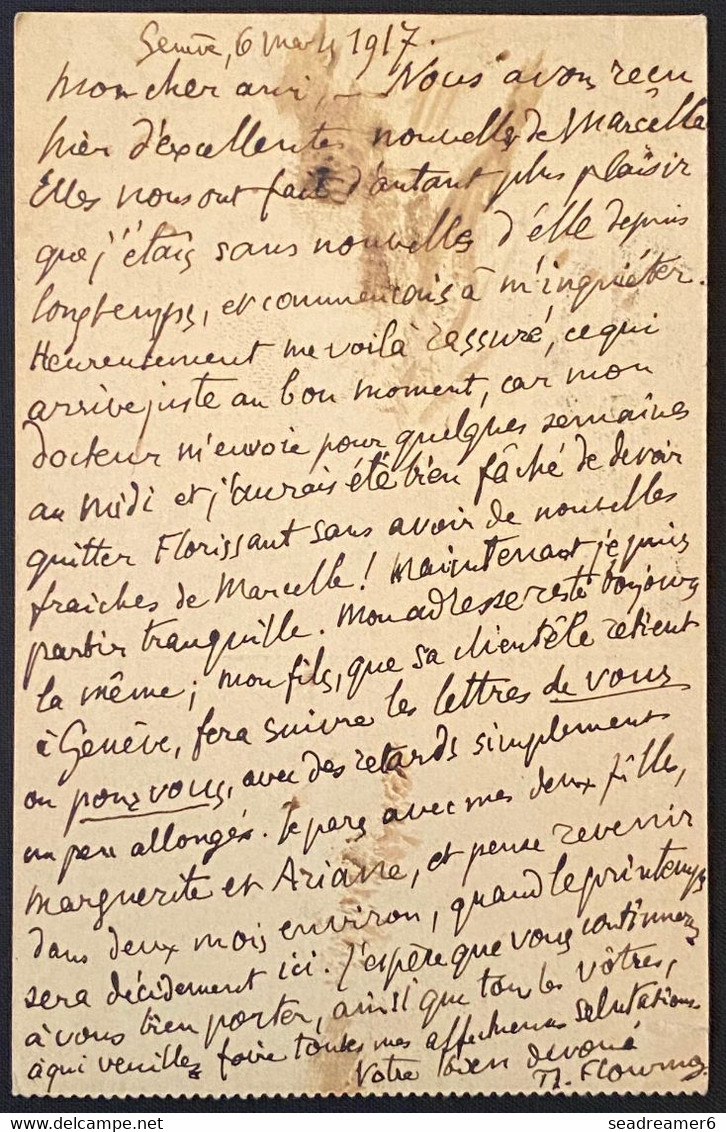 Genève, 6 mars 1917.
Mon cher ami, — Nous avons reçu
hier d'excellentes nouvelles de Marcelle
Elles nous ont fait d'autant plus plaisir
que j'étais sans nouvelles d'elle depuis
longtemps, et commençais à m'inquiéter.
Heureusement me voilà rassuré, ce qui
arrive juste au bon moment, car mon
docteur m'envoie pour quelques semaines
au Midi et j'aurais été bien fâché de devoir
quitter Florissant sans avoir de nouvelles
fraîches de Marcelle! Maintenant je puis
partir tranquille. Mon adresse reste toujours
la même; mon fils, que sa clientèle retient
à Genève, fera suivre les lettres de vous
ou pour vous, avec des retards simplement
un peu allongés. Je pars avec mes deux filles,
Marguerite et Ariane, et pense revenir
dans deux mois environ, quand le printemps
sera décidément ici. J'espère que vous continuez
à vous bien porter, ainsi que tous les vôtres,
à qui veuillez faire toutes mes affectueuses salutations
Votre bien dévoué
Th. Flournoy.
seadreamer6 | delcampe.net